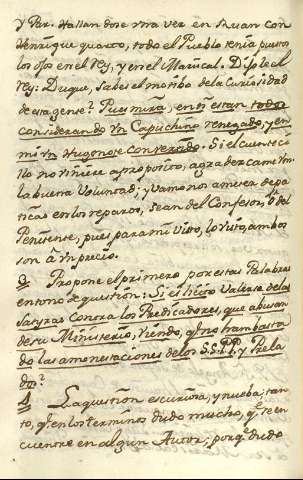 y Par. Hallandose otra vez en Ruan con
Henrique quarto, todo el Pueblo tenia puestos
los ojos en el Rey, y en el Mariscal. Dijole el
Rey: Duque, sabes el motibo de la Curiosidad
de esta gente? Pues mira, en ti estan todos
considerando Vn Capuchino renegado, y en
mi vn Vgonote Convertido. Si el cuentecillo
no viniere a proposito, agradezcaseme
la buena Voluntad; y vamonos a meter de pa
ticas en los reparos, sean del Confesor, ò del
Penitente, pues para mi Vivo, lo Visto, ambos
son à Vn precio.
3 Propone el primero por estas Palabras
en tono de question: Si es licito Valerse de las
Satyras Contra los Predicadores, que abusan
de su Ministerio, Viendo, q no han bastado
las amonestaciones de los S.S. P.P. y Prelados?
4 La question es curiosa, y nueba; tanto,
q en los terminos dudo mucho, q se encuentre
en algun Autor; porq dudo